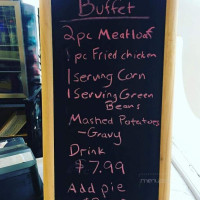 Buffet
2pc Meatloaf
1pc Fried chicken
1 serving Corn
1 Serving Green
Beans
Mashed Potatoes
-Gravy
Drink
$7.99
Add pie